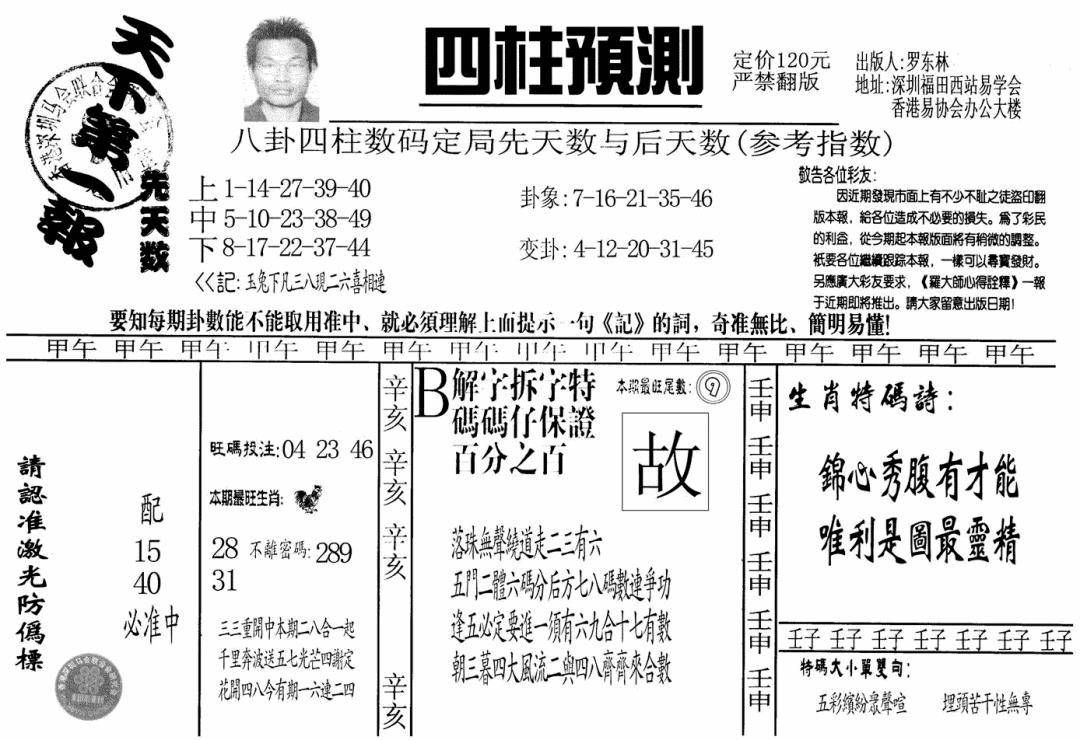 天下第一報
四柱預測
定价120元
严禁翻版
出版人:罗东林
地址:深圳福田西站易学会
香港易协会办公大楼
八卦四柱数码定局先天数与后天数(参考指数)
先天数
上1-14-27-39-40
中5-10-23-38-49
下8-17-22-37-44
<<記:玉兔下凡三八現二六喜相連
卦象:7-16-21-35-46
变卦:4-12-20-31-45
敬告各位彩友:
因近期發現市面上有不少不耻之徒盜印翻
版本報，給各位造成不必要的損失。為了彩民
的利益，從今期起本報版面將有稍微的調整。
衹要各位繼續跟踪本報，一樣可以尋寶發財。
另應廣大彩友要求，《羅大師心得詮釋》一報
于近期即將推出。請大家留意出版日期!
要知每期卦數能不能取用准中、就必須理解上面提示一句《記》的詞，奇准無比、簡明易懂!
甲午 甲午 甲午 甲午 甲午 甲午 甲午 甲午 甲午 甲午 甲午 甲午 甲午 甲午 甲午
請認准激光防偽標
配
15
40
必准中
旺碼投注:04 23 46
本期最旺生肖:
28 不離密碼:289
31
三三重開中本期二八合一起
千里奔波送五七光芒四謝定
花開四八今有期一六連二四
辛亥
辛亥
辛亥
辛亥
B解字拆字特
碼碼仔保證
百分之百
本期最旺尾數:9
故
落珠無聲繞道走二三有六
五門二體六碼分后方七八碼數連爭功
逢五必定要進一須有六九合十七有數
朝三暮四大風流二與四八齊齊來合數
壬申
壬申
壬申
壬申
壬申
壬申
生肖特碼詩:
錦心秀腹有才能
唯利是圖最靈精
壬子 壬子 壬子 壬子 壬子 壬子 壬子
特碼大小單雙句:
五彩繽紛眾聲喧 埋頭苦干性無專